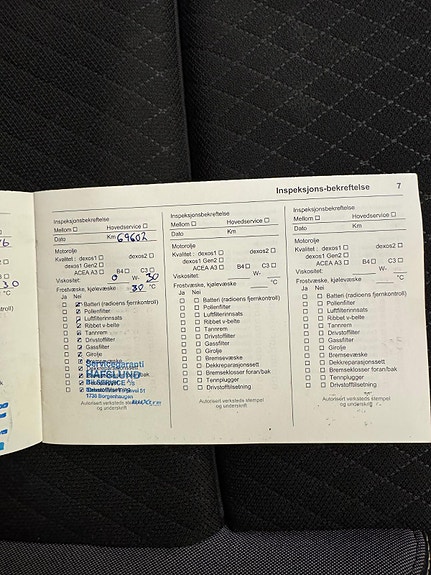 Inspeksjons-bekreftelse 7
Inspeksjonsbekreftelse
Mellom ☐ Hovedservice ☐
Dato Km 69602
Motorolje
Kvalitet : dexos1 ☐ dexos2 ☐
dexos1 Gen2 ☐
ACEA A3 ☐ B4 ☐ C3 ☐
Viskositet: 0 W- 30
Frostvæske, kjølevæske -30 °C
Ja Nei
Batteri (radioens fjernkontroll)
Pollenfilter
Luftfilterinnsats
Ribbet v-belte
Tannrem
Drivstoffilter
Gassfilter
Girolje
Servicegaranti
HAFSLUND
BILSERVICE
1738 Borgenhaugen
Autorisert verksteds stempel
og underskrift
Inspeksjonsbekreftelse
Mellom ☐ Hovedservice ☐
Dato Km
Motorolje
Kvalitet : dexos1 ☐ dexos2 ☐
dexos1 Gen2 ☐
ACEA A3 ☐ B4 ☐ C3 ☐
Viskositet: W-
Frostvæske, kjølevæske °C
Ja Nei
☐ ☐ Batteri (radioens fjernkontroll)
☐ ☐ Pollenfilter
☐ ☐ Luftfilterinnsats
☐ ☐ Ribbet v-belte
☐ ☐ Tannrem
☐ ☐ Drivstoffilter
☐ ☐ Gassfilter
☐ ☐ Girolje
☐ ☐ Bremsevæske
☐ ☐ Dekkreparasjonssett
☐ ☐ Bremseklosser foran/bak
☐ ☐ Tennplugger
☐ ☐ Drivstofftilsetning
Autorisert verksteds stempel
og underskrift
Inspeksjonsbekreftelse
Mellom ☐ Hovedservice ☐
Dato Km
Motorolje
Kvalitet : dexos1 ☐ dexos2 ☐
dexos1 Gen2 ☐
ACEA A3 ☐ B4 ☐ C3 ☐
Viskositet: W-
Frostvæske, kjølevæske °C
Ja Nei
☐ ☐ Batteri (radioens fjernkontroll)
☐ ☐ Pollenfilter
☐ ☐ Luftfilterinnsats
☐ ☐ Ribbet v-belte
☐ ☐ Tannrem
☐ ☐ Drivstoffilter
☐ ☐ Gassfilter
☐ ☐ Girolje
☐ ☐ Bremsevæske
☐ ☐ Dekkreparasjonssett
☐ ☐ Bremseklosser foran/bak
☐ ☐ Tennplugger
☐ ☐ Drivstofftilsetning
Autorisert verksteds stempel
og underskrift